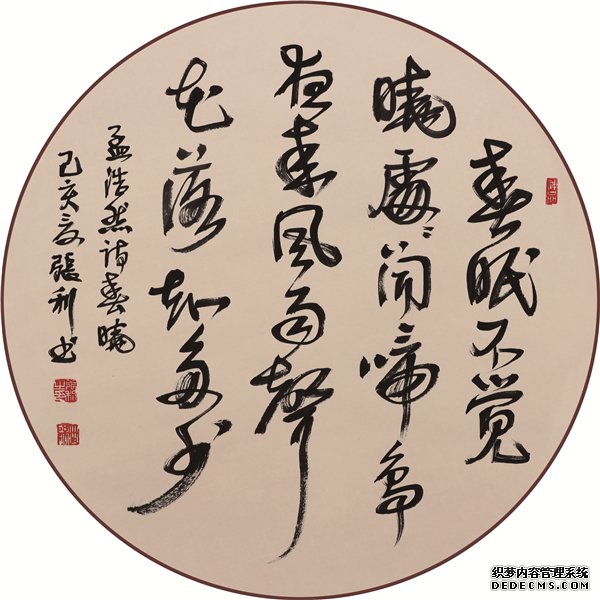 春眠不觉
曉處〻闻啼鸟
夜来风雨聲
花落知多少
孟浩然诗春曉
己亥夏張利书
织梦内容管理系统
DEDECMS.COM